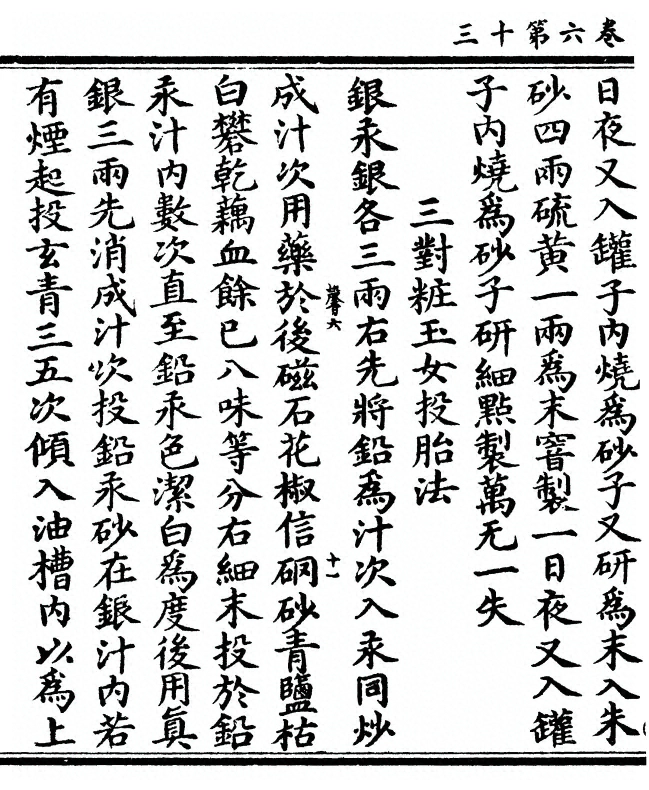 卷六第十三
日夜又入罐子內燒爲砂子又硏爲末入朱
砂四兩硫黃一兩爲末窨製一日夜又入罐
子內燒爲砂子硏細點製萬无一失
三對粧玉女投胎法
銀汞銀各三兩右先將鉛爲汁次入汞同炒
成汁次用藥於後磁石花椒信硇砂青鹽枯
白礬乾藕血餘已八味等分右細末投於鉛
汞汁內數次直至鉛汞色潔白爲度後用眞
銀三兩先消成汁次投鉛汞砂在銀汁內若
有煙起投玄青三五次傾入油槽內以爲上
馨六
十一